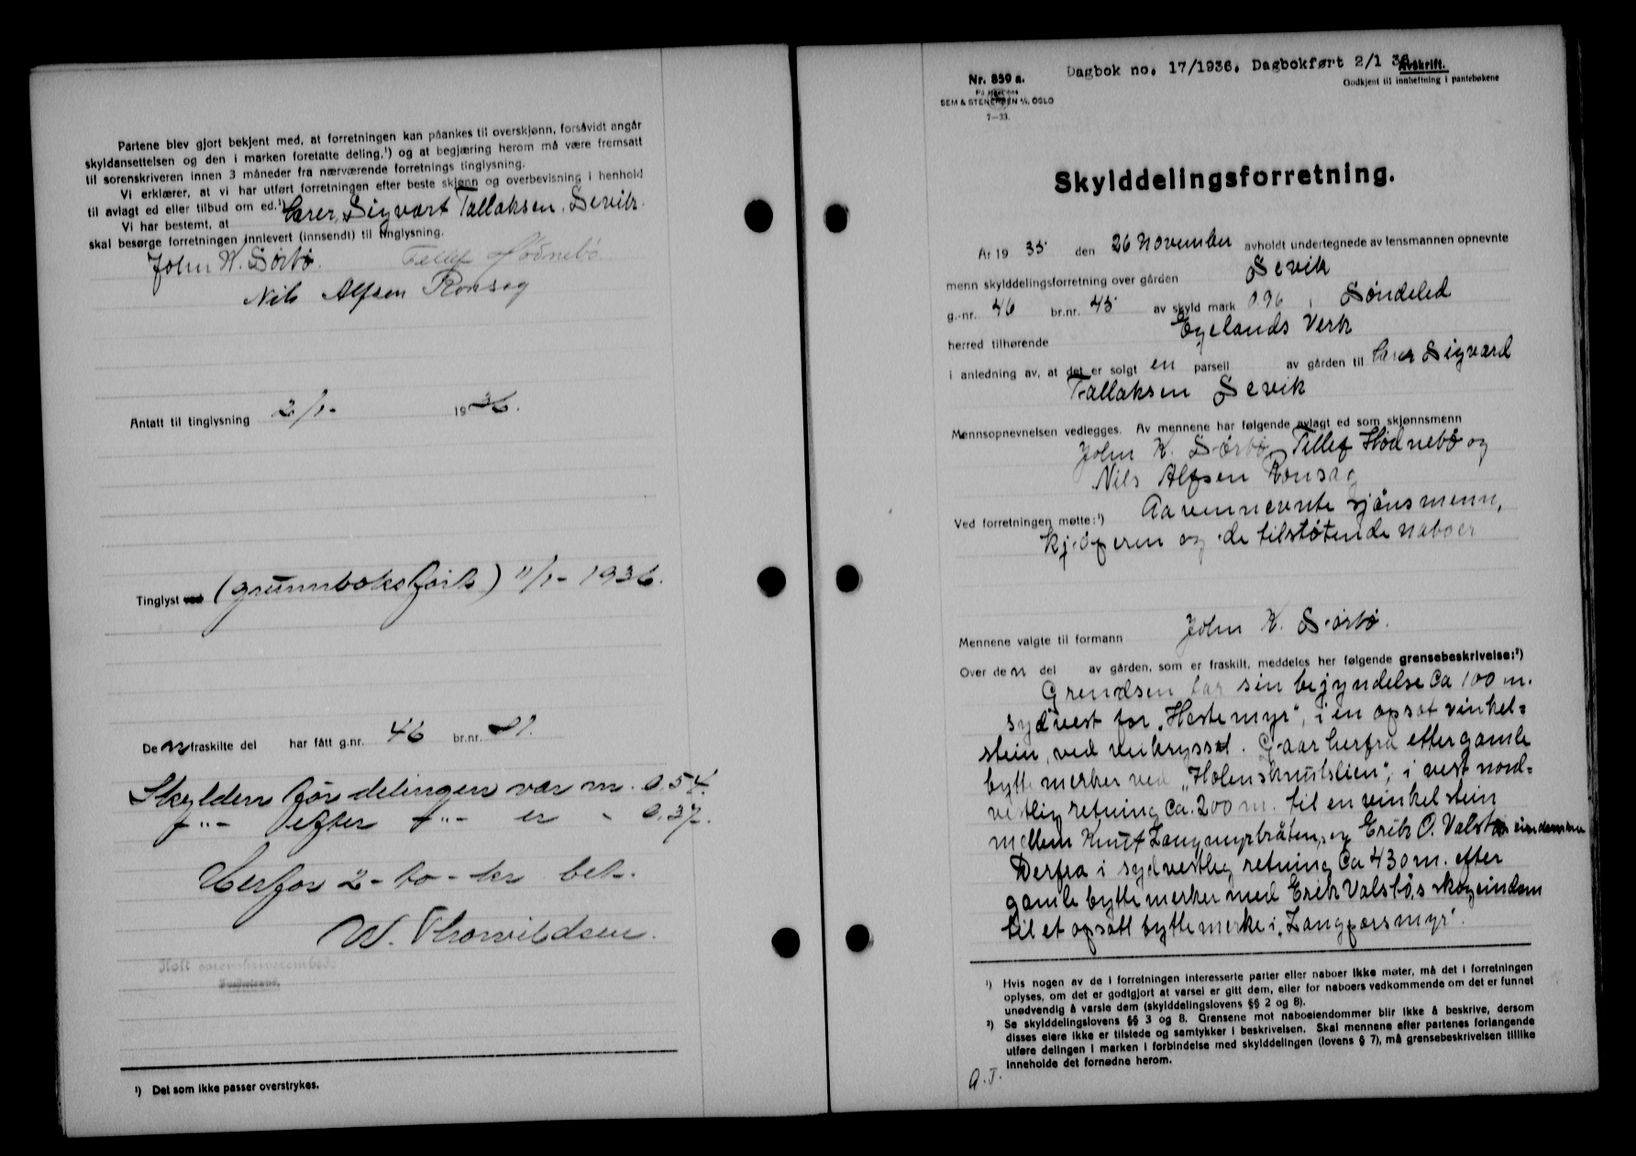 Partene blev gjort bekjent med, at forretningen kan påankes til overskjønn, forsåvidt angår
skyldansettelsen og den i marken foretatte deling,¹) og at begjæring herom må være fremsatt
til sorenskriveren innen 3 måneder fra nærværende forretnings tinglysning.
Vi erklærer, at vi har utført forretningen efter beste skjønn og overbevisning i henhold
til avlagt ed eller tilbud om ed.¹)
Vi har bestemt, at Sigvart Tallaksen, Sevik
skal besørge forretningen innlevert (innsendt) til tinglysning.
John K. Sörbö. Tellef Hödnebö
Nils Alfsen Ronsag
Antatt til tinglysning 2/1- 1936.
Tinglyst ved (grunnboksført) 11/1- 1936.
De n fraskilte del har fått g.nr. 46 br.nr. 91.
Skylden før delingen var m. 0.54.
-"- efter -"- er - 0.37.
Herfor 2- to - kr bet.
W. Thorvildsen.
Holt sorenskriverembed.
¹) Det som ikke passer overstrykes.
Nr. 859 a.
SEM & STENERSEN A/S, OSLO
7—33.
Dagbok no. 17/1936. Dagbokført 2/1 36.
Avskrift.
Godkjent til innheftning i pantebøkene
Skylddelingsforretning.
År 1935 den 26 November avholdt undertegnede av lensmannen opnevnte
menn skylddelingsforretning over gården Sevik
g.-nr. 46 br.nr. 45 av skyld mark 0.96 i Söndeled
herred tilhørende Egelands Verk
i anledning av, at det er solgt en parsell av gården til Sigvard
Tallaksen Sevik
Mennsopnevnelsen vedlegges. Av mennene har følgende avlagt ed som skjønnsmenn
John K. Sörbö, Tellef Hödnebö og
Nils Alfsen Ronsag
Ved forretningen møtte:¹) Aavennevnte sjönsmenn,
kjöperen og de tilstötende naboer
Mennene valgte til formann John K. Sörbö.
Over den del av gården, som er fraskilt, meddeles her følgende grensebeskrivelse:²)
Grendsen har sin begyndelse Ca 100 m.
sydvest for „Hestemyr", i en opsat vinkel=
stein, ved veikrysset. Gaar herfra efter gamle
bytte merker ved „Holensknutslien", i vest nord=
vestlig retning Ca. 200 m. til en vinkel stein
mellem Knut Langmyrbråten og Erik O. Valstös eindommer
Derfra i sydvestleg retning Ca 430 m. efter
gamle bytte merker med Erik Valstös skogeindom
til et opsatt bytte merke i „Langforsmyr".
¹) Hvis nogen av de i forretningen interesserte parter eller naboer ikke møter, må det i forretningen
oplyses, om det er godtgjort at varsel er gitt dem, eller for naboers vedkommende om det er funnet
unødvendig å varsle dem (skylddelingslovens §§ 2 og 8).
²) Se skylddelingslovens §§ 3 og 8. Grensene mot naboeiendommer blir ikke å beskrive, dersom
disses eiere ikke er tilstede og samtykker i beskrivelsen. Skal mennene efter partenes forlangende
utføre delingen i marken i forbindelse med skylddelingen (lovens § 7), må grensebeskrivelsen tillike
inneholde det fornødne herom.
A.T.